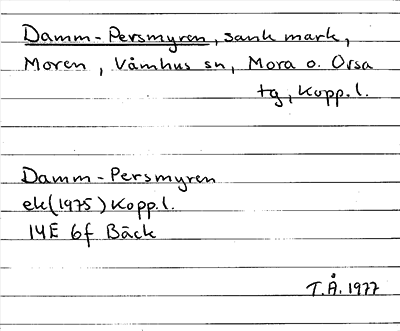 Damm-Persmyren, sank mark,
Moren, Våmhus sn, Mora o. Orsa
tg, Kopp.l.
Damm-Persmyren
ek(1975) Kopp.l.
14E 6f Bäck
T.Å. 1977